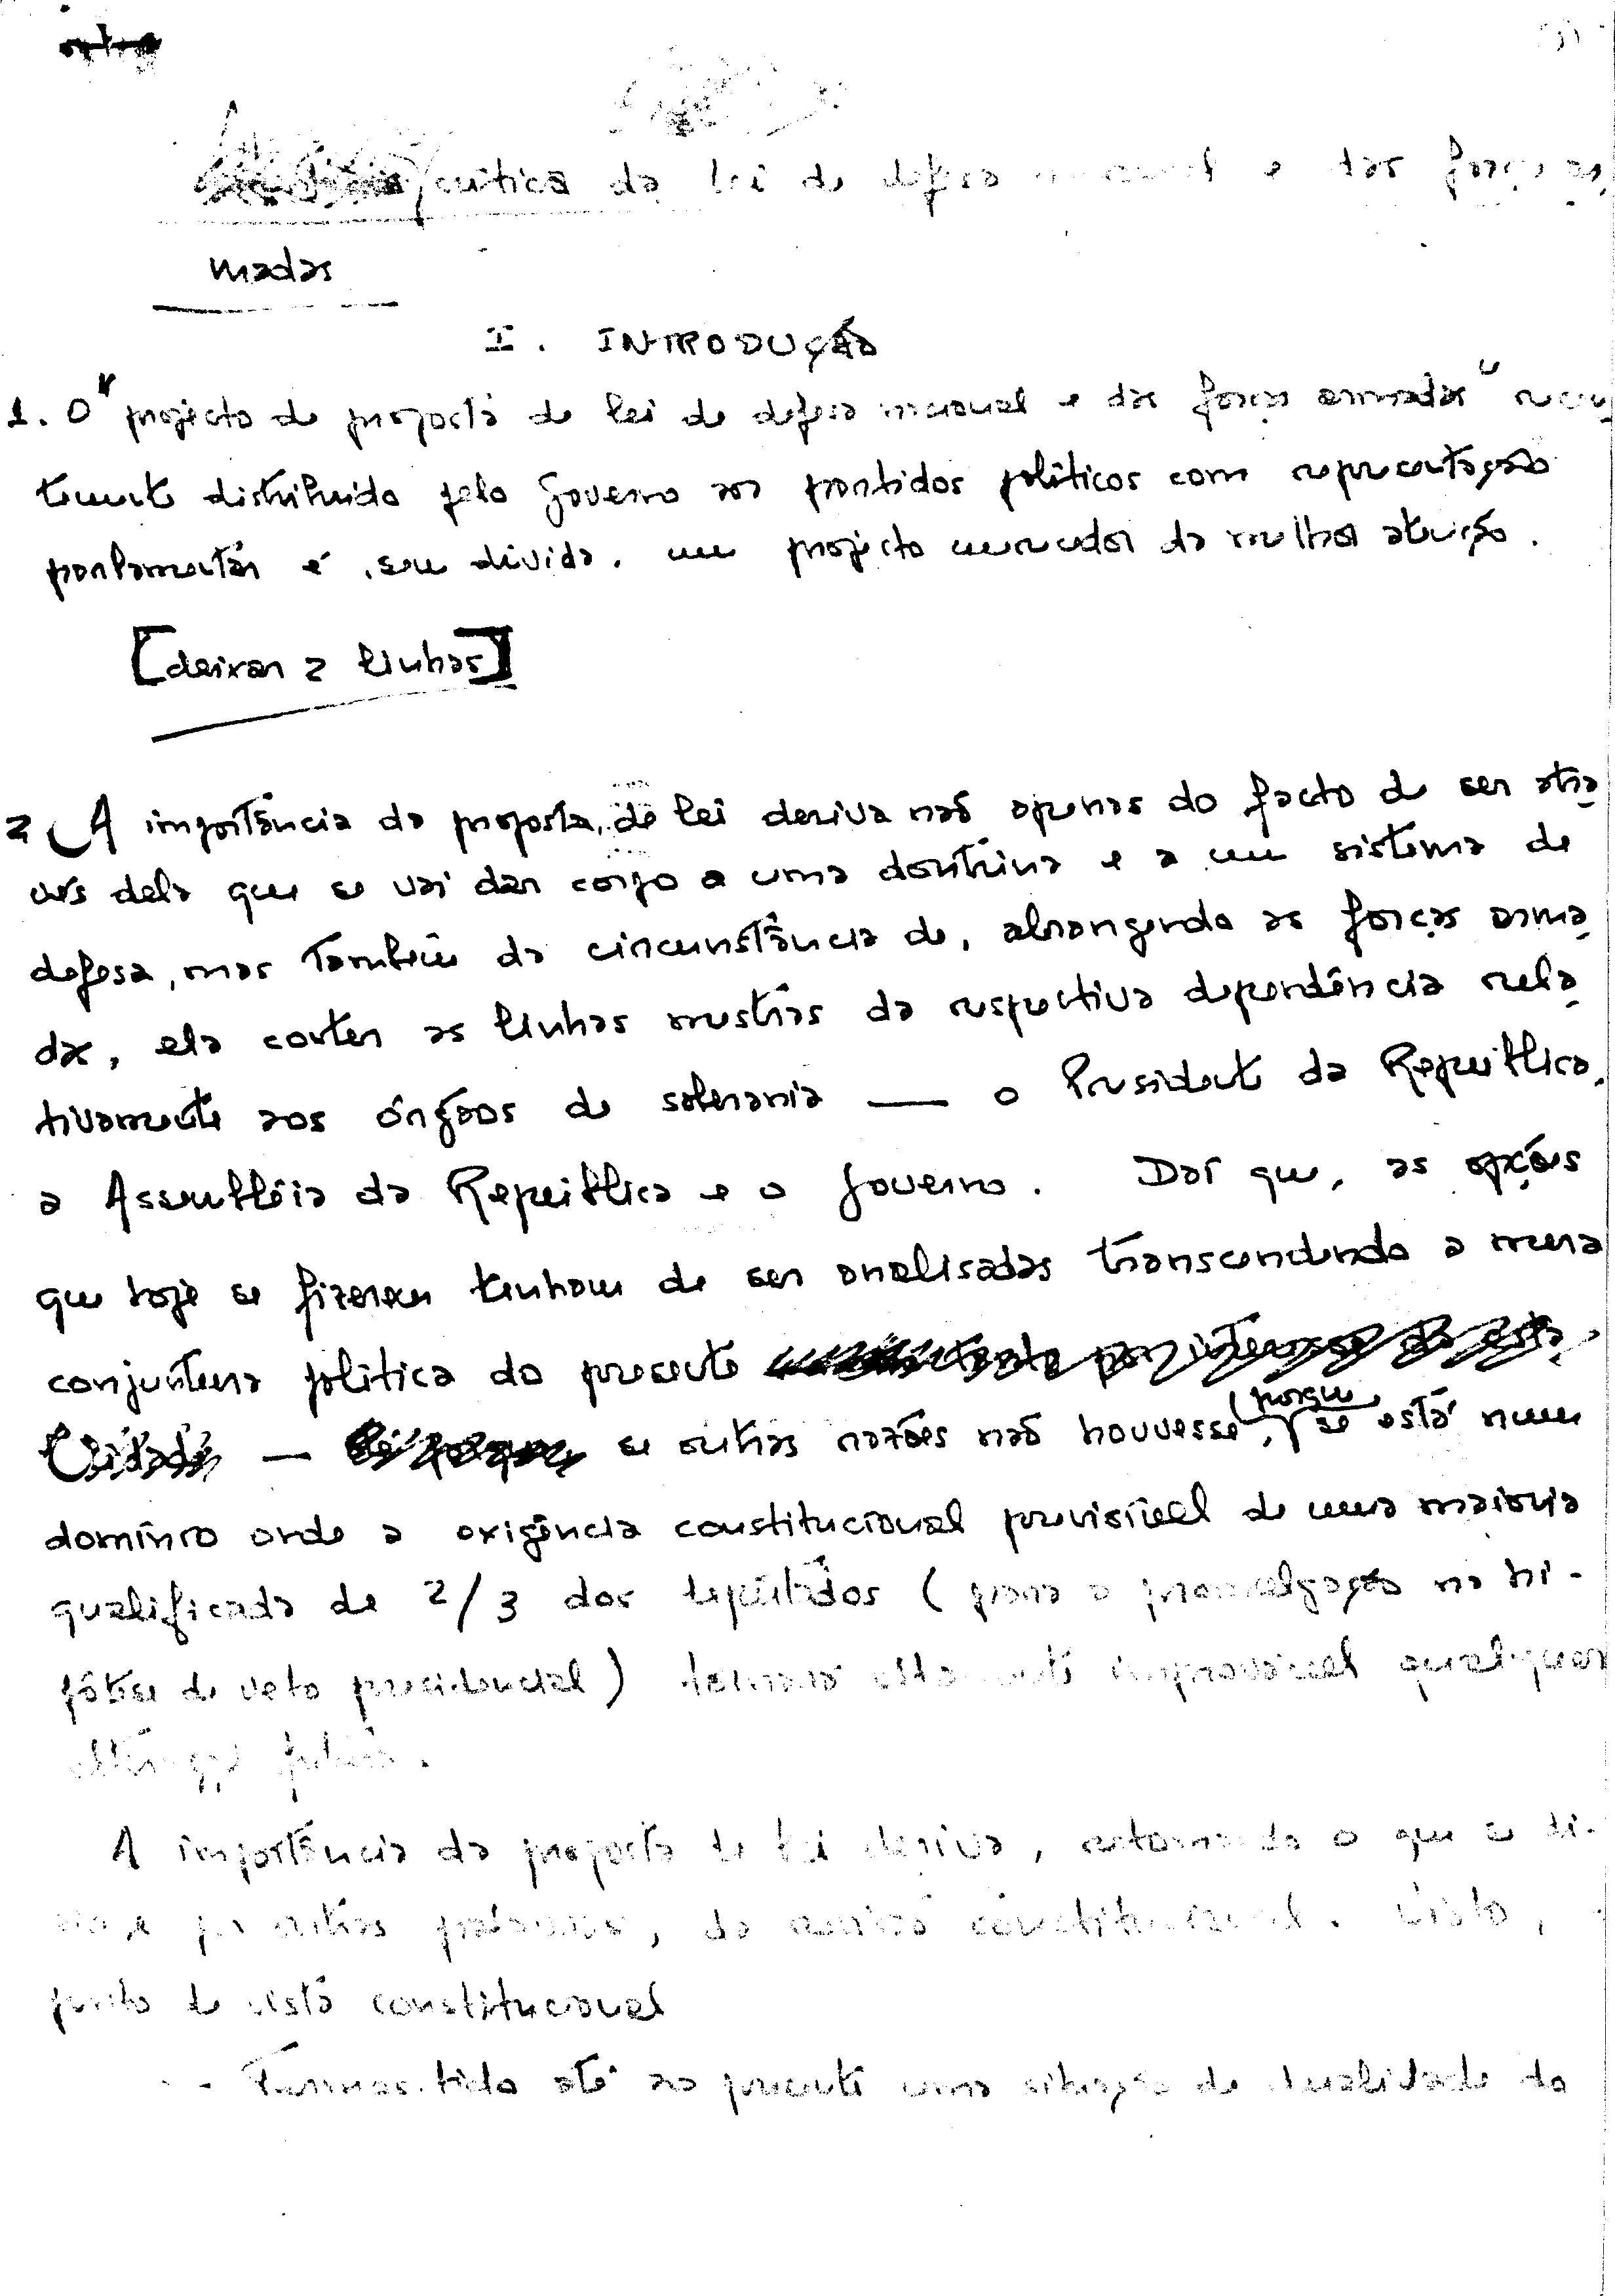 crítica da lei de defesa nacional e das forças ar-
madas
I. INTRODUÇÃO
1. O "projecto de proposta de lei de defesa nacional e das forças armadas" recen-
temente distribuido pelo Governo aos partidos políticos com representação
parlamentar é, sem dúvida, um projecto merecedor da melhor atenção.
[deixar 2 linhas]
2 A importância da proposta de lei deriva não apenas do facto de ser atra-
vés dela que se vai dar corpo a uma doutrina e a um sistema de
defesa, mas também da circunstância de, abrangendo as forças arma-
das, ela conter as linhas mestras da respectiva dependência rela-
tivamente aos órgãos de soberania — o Presidente da República,
a Assembleia da República e o Governo. Daí que, as opções
que hoje se fizerem tenham de ser analisadas transcendendo a mera
conjuntura política do presente
— se outras razões não houvesse, porque se está num
domínio onde a exigência constitucional previsível de uma maioria
qualificada de 2/3 dos deputados (para a promulgação na hi-
pótese de veto presidencial) tornará altamente improvável qualquer
alteração futura.
A importância da proposta de lei deriva, retomando o que se di-
por outras palavras, da revisão constitucional. Visto,
ponto de vista constitucional
- Tínhamos tido até ao presente uma situação de dualidade do